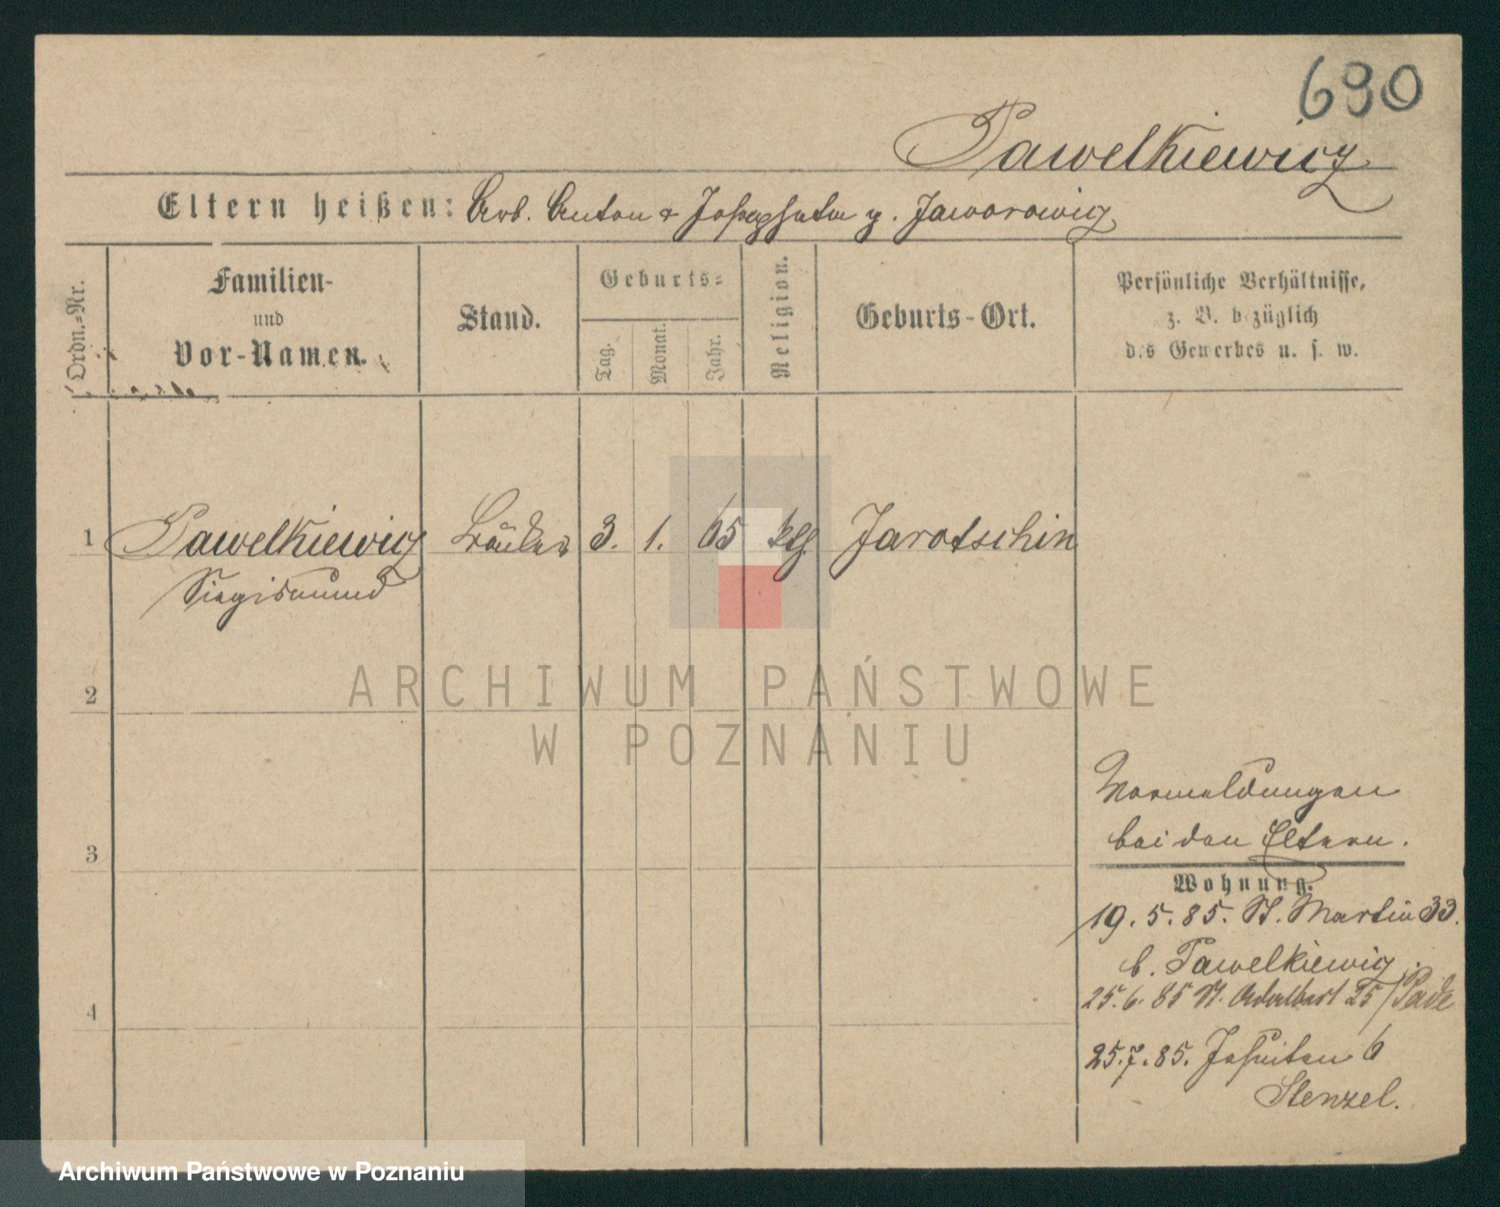 690
Pawelkiewicz
Eltern heißen: Arb. Anton & Josephata g. Jaworowicz
Ordn.-Nr.
Familien-
und
Vor-Namen.
Stand.
Geburts-
Tag.
Monat.
Jahr.
Religion.
Geburts-Ort.
Persönliche Verhältnisse,
z. B. bezüglich
des Gewerbes u. s. w.
1 Pawelkiewicz 3. 1. 65 ktl Jarotschin
Siegismund
ARCHIWUM PAŃSTWOWE
W POZNANIU
2
3
4
Vormeldungen
bei den Eltern.
Wohnung.
19. 5. 85. St. Martin 33.
b. Pawelkiewicz
25. 6. 85 St. Adalbert 25/
25. 7. 85. Jesuiten 6
Stenzel.
Archiwum Państwowe w Poznaniu